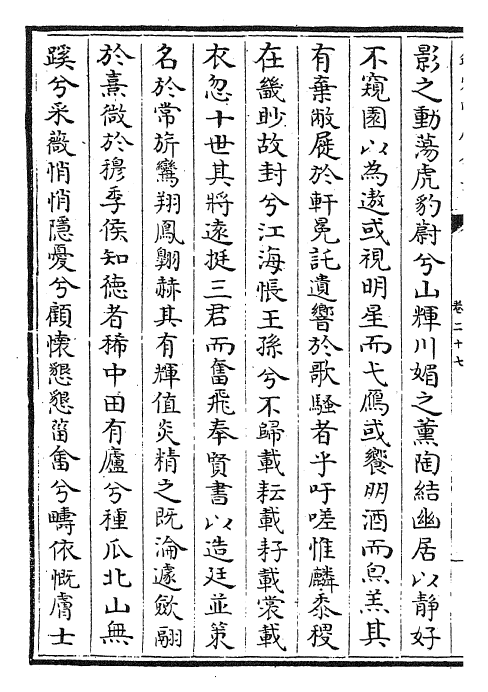 影之動蕩虎豹蔚兮山輝川媚之薰陶結幽居以静好
不窺園以為遨或視明星而弋鴈或饗朋酒而炰羔其
有棄敝屣於軒冕託遺響於歌騷者乎吁嗟惟麟黍稷
在畿眇故封兮江海悵王孫兮不歸載耘載耔載裳載
衣忽十世其將遠挺三君而奮飛奉賢書以造廷並策
名於常旂鸞翔鳳翺赫其有輝值炎精之既淪遽斂翮
於熹微於穆季侯知徳者稀中田有廬兮種瓜北山無
蹊兮采薇悄悄隱憂兮顧懐懇懇菑畬兮疇依慨膚士
卷二十七